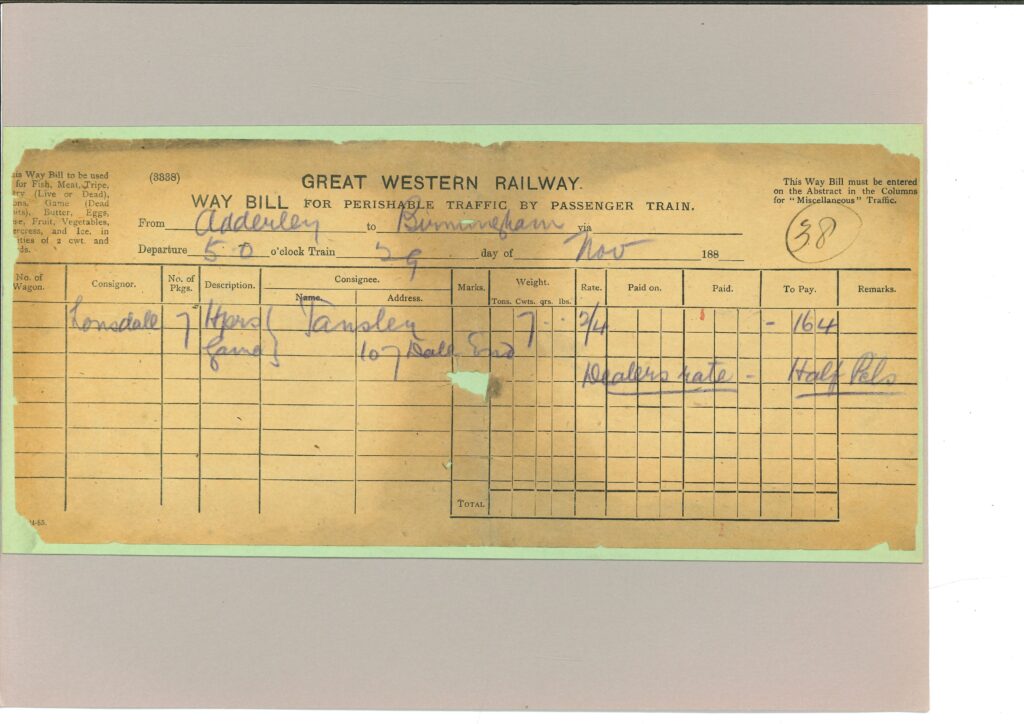 is Way Bill to be used
for Fish, Meat, Tripe,
try (Live or Dead),
ons, Game (Dead
its), Butter, Eggs,
se, Fruit, Vegetables,
ercress, and Ice, in
tities of 2 cwt. and
rds.
(3338)
GREAT WESTERN RAILWAY.
WAY BILL FOR PERISHABLE TRAFFIC BY PASSENGER TRAIN.
This Way Bill must be entered
on the Abstract in the Columns
for "Miscellaneous" Traffic.
From Adderley to Birmingham via
38
Departure 5 0 o'clock Train 29 day of Nov 188
No. of Wagon. Consignor. No. of Pkgs. Description. Consignee. Name. Address. Marks. Weight. Tons. Cwts. qrs. lbs. Rate. Paid on. Paid. To Pay. Remarks.
Lonsdale 7 Hprs Tansley 7 - - 2/4 - 16 4
107 Dale End
Dealers rate - Half Pels
TOTAL
4-85.